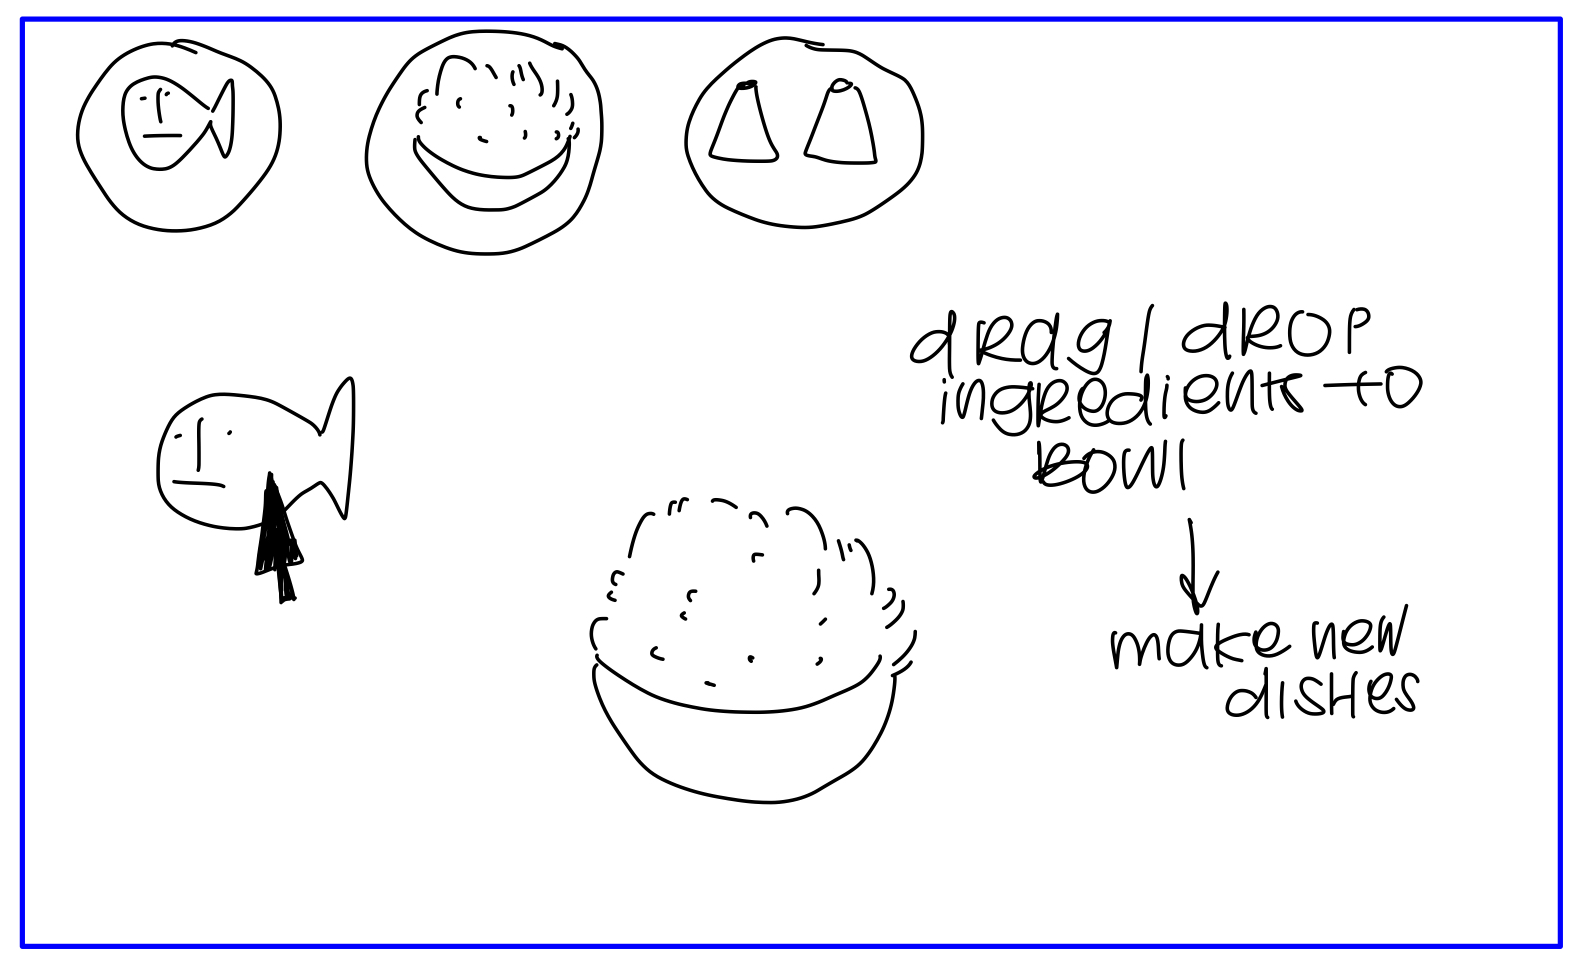 drag / drop
ingredients to
bowl
make new
dishes